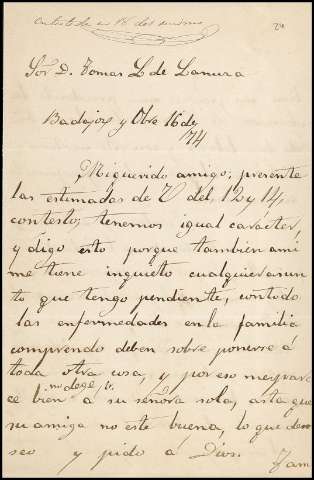 Contestada en 18 del mismo
Sor D. Tomas L de Lamuza
Badajoz y Obre 16 de
74
Mi querido amigo; presente
las estimadas de V del, 12 y 14,
contesto; tenemos igual carácter,
y digo esto porque tambien ami
me tiene inquieto cualquier asun
to que tengo pendiente, contodo
las enfermedades en la familia
comprendo deben sobre ponerse á
toda otra cosa, y por eso me pare
no dege V.
ce bien á su señora sola, asta que
su amiga no este buena, lo que de
seo y pido á Dios.
Tam